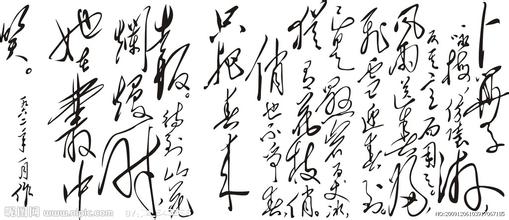 卜算子
咏梅
反其意而用之
风雨送春归
飞雪迎春到
已是悬崖百丈冰
犹有花枝俏。
俏也不争春
只把春来
报。待到山花
烂熳时
她在丛中
笑。
一九六二年一月作
昵图网 www.nipic.com
NO:20091206103917067185